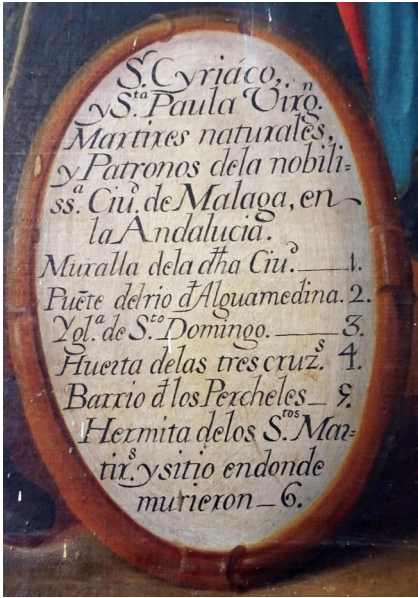 Sr. Cyriáco,
y Sta. Paula Virgn.
Martires naturales,
y Patronos dela nobili=
ssa. Ciud. de Malaga, en
la Andalucia.
Muralla dela dha Ciud. 1.
Puẽte del rio đ Alguamedina. 2.
Ygla. de Sto. Domingo. 3.
Huerta delas tres cruzs. 4.
Barrio đ los Percheles 5.
Hermita delos Stros. Mar=
tirs. y sitio endonde
murieron 6.